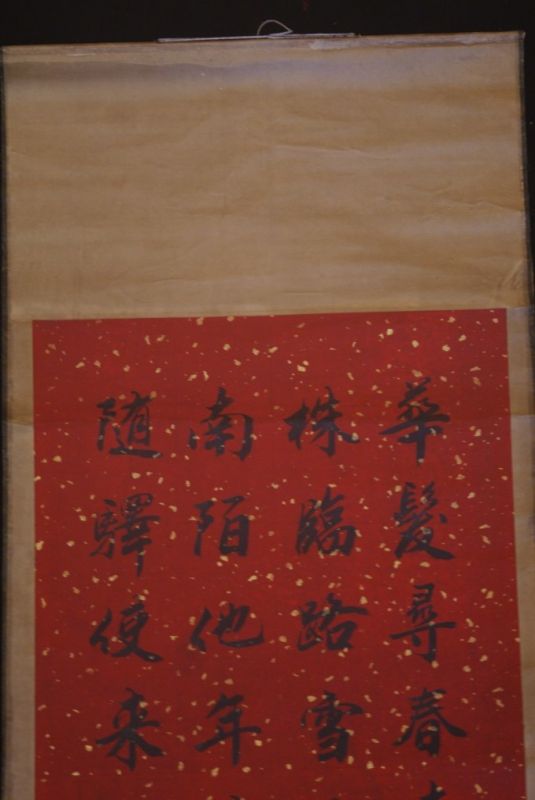 華髮尋春
株臨路雪
南陌他年
随驛使来